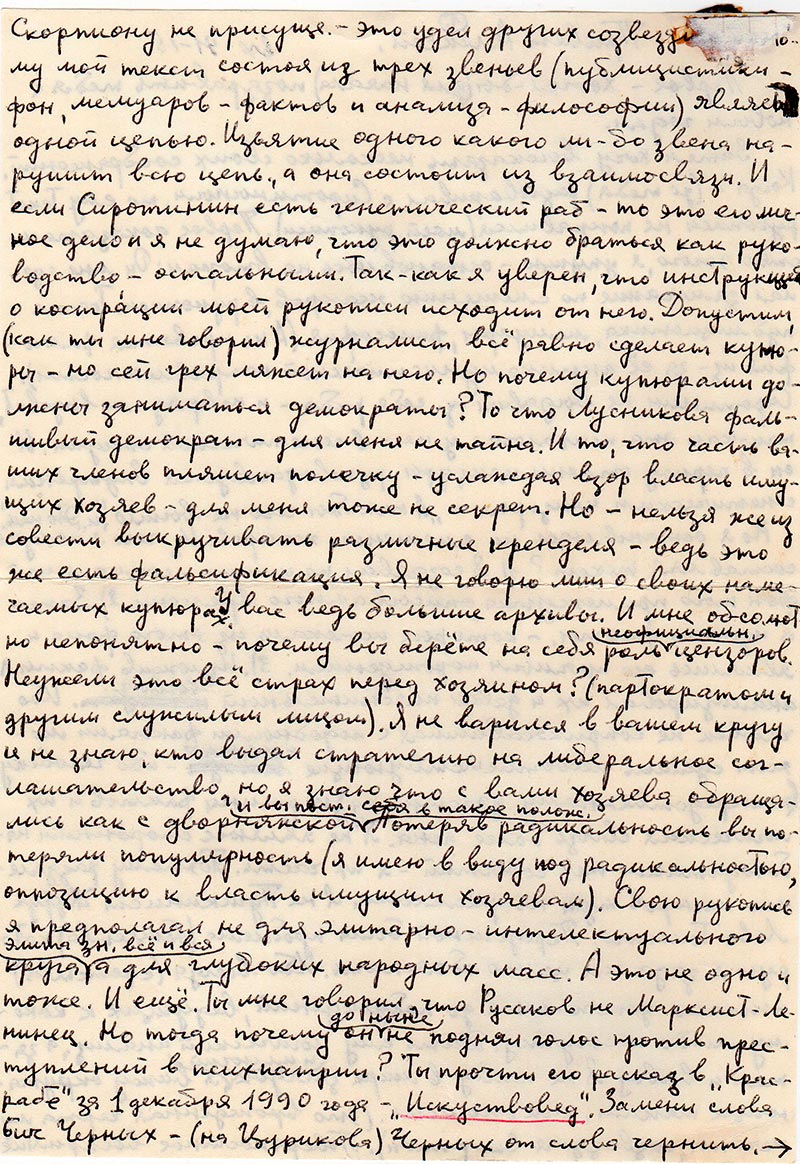 Скорпиону не присуще. – это удел других созвезди
му мой текст состоя из трех звеньев (публицистики –
фон, мемуаров – фактов и анализа – философии) являе
одной цепью. Изъятие одного какого ли-бо звена на-
рушит всю цепь, а она состоит из взаимосвязи. И
если Сиротинин есть генетический раб – то это его лич-
ное дело и я не думаю, что это должно браться как руко-
водство – остальными. Так-как я уверен, что инструкция
о кострации моей рукописи исходит от него. Допустим,
(как ты мне говорил) журналист всё равно сделает купю-
ры – но сей грех ляжет на него. Но почему купюрами до-
лжны заниматься демократы? То что Лусникова фаль-
шивый демократ – для меня не тайна. И то, что часть ва-
ших членов пляшет полечку – услаждая взор власть иму-
щих хозяев – для меня тоже не секрет. Но – нельзя же из
совести выкручивать различные кренделя – ведь это
же есть фальсификация. Я не говорю лиш о своих наме-
чаемых купюрах. У вас ведь большие архивы. И мне обсолют-
но непонятно – почему вы берёте на себя неофициальн. роль цензоров.
Неужели это всё страх перед хозяином? (партократом и
другим служилым лицом). Я не варился в вашем кругу
и не знаю, кто выдал стратегию на либеральное сог-
лашательство, но я знаю что с вами хозяева обраща-
лись как с дворнянской, и вы пост. себя в такое полож. Потеряв радикальность вы по-
теряли популярность (я имею в виду под радикальностью,
оппозицию к власть имущим хозяевам). Свою рукопись
я предполагал не для элитарно – интелектуального
круга элита зн. всё и вся а для глубоких народных масс. А это не одно и
тоже. И ещё. Ты мне говорил, что Русаков не Марксист-Ле-
нинец. Но тогда почему он до ныне не поднял голос против прес-
туплений в психиатрии? Ты прочти его расказ в „Крас-
рабе" за 1 декабря 1990 года – „Искуствовед". Замени слова
бис Черных – (на Цурикова) Черных от слова чернить. →